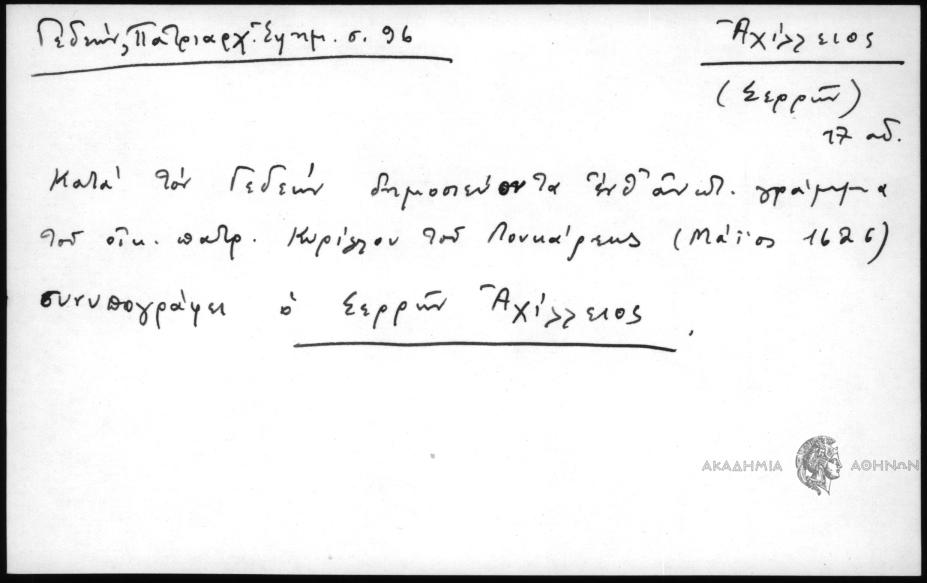 Γεδεών, Πατριαρχ. Ἐφημ. σ. 96
Ἀχίλλειος
(Σερρῶν)
17 αἰ.
Κατὰ τὸν Γεδεὼν δημοσιεύοντα ἔνθ' ἀνωτ. γράμμα
τοῦ οἰκ. πατρ. Κυρίλλου τοῦ Λουκάρεως (Μάϊος 1626)
συνυπογράφει ὁ Σερρῶν Ἀχίλλειος.
ΑΚΑΔΗΜΙΑ ΑΘΗΝΩΝ